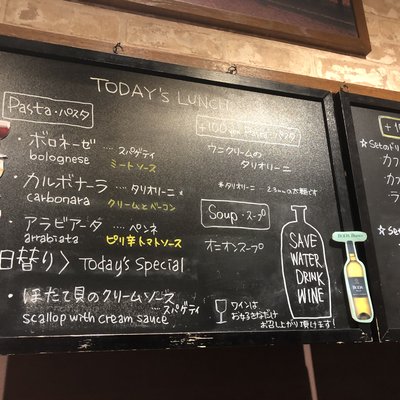 TODAY'S LUNCH
Pasta・パスタ
・ボロネーゼ ···· スパゲティ
bolognese ミートソース
・カルボナーラ ···· タリオリーニ*
carbonara クリームとベーコン
・アラビアータ ···· ペンネ
arrabiata ピリ辛トマトソース
日替り〉 Today's Special
・ほたて貝のクリームソース
スパゲティ
scallop with cream sauce
+100
ウニクリームの
タリオリーニ
*タリオリーニ
Soup・スープ
オニオンスープ
SAVE
WATER
DRINK
WINE
ワインは
お好きなだけ
お召し上がり頂けます!
☆Setのドリ
カフ
カフ
ラ
☆Set